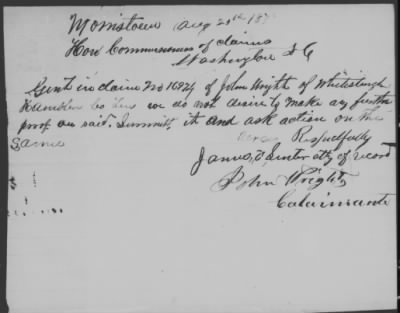 Morristown Aug 20th 187
Hon Commissioners of claims
Washington D C
Gents in claim No 16824 of John Wright of Whitesburgh
Hamblen Co Tenn we do not desire to make any further
proof on said. Submit it and ask action on the
same
Respectfully
James atty of record
John Wright
Calaimante